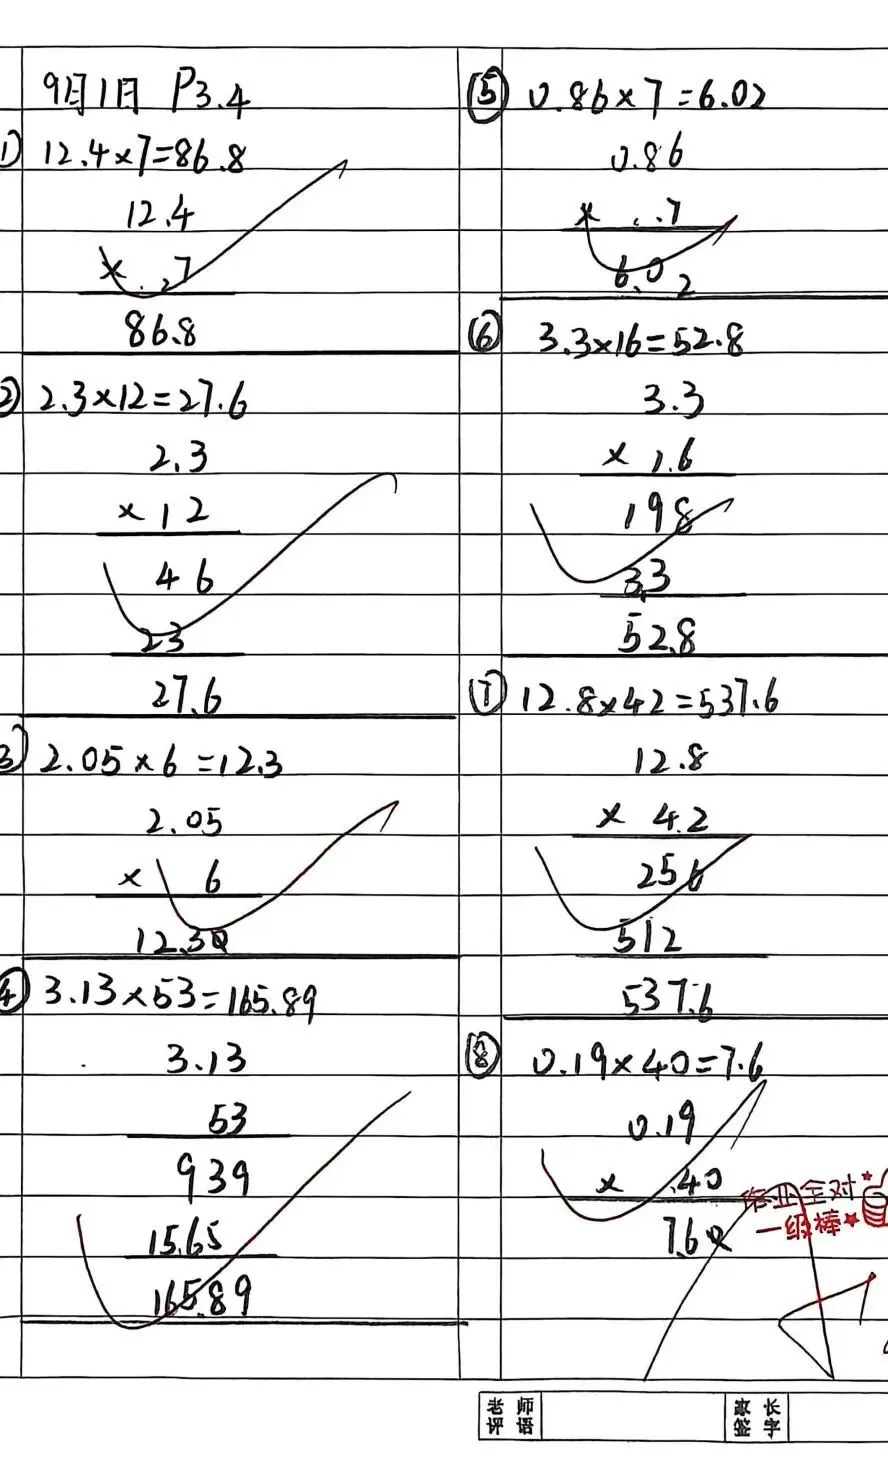 9月1日 P3.4
① 12.4×7=86.8
12.4
× .7
86.8
② 2.3×12=27.6
2.3
×12
46
23
27.6
③ 2.05×6=12.3
2.05
× 6
12.30
④ 3.13×53=165.89
3.13
53
939
15.65
165.89
⑤ 0.86×7=6.02
0.86
× ..7
6.02
⑥ 3.3×16=52.8
3.3
× 1.6
198
3.3
52.8
⑦ 12.8×42=537.6
12.8
× 4.2
256
512
537.6
⑧ 0.19×40=7.6
0.19
× .40
7.60
作业全对
一级棒
老师评语
家长签字